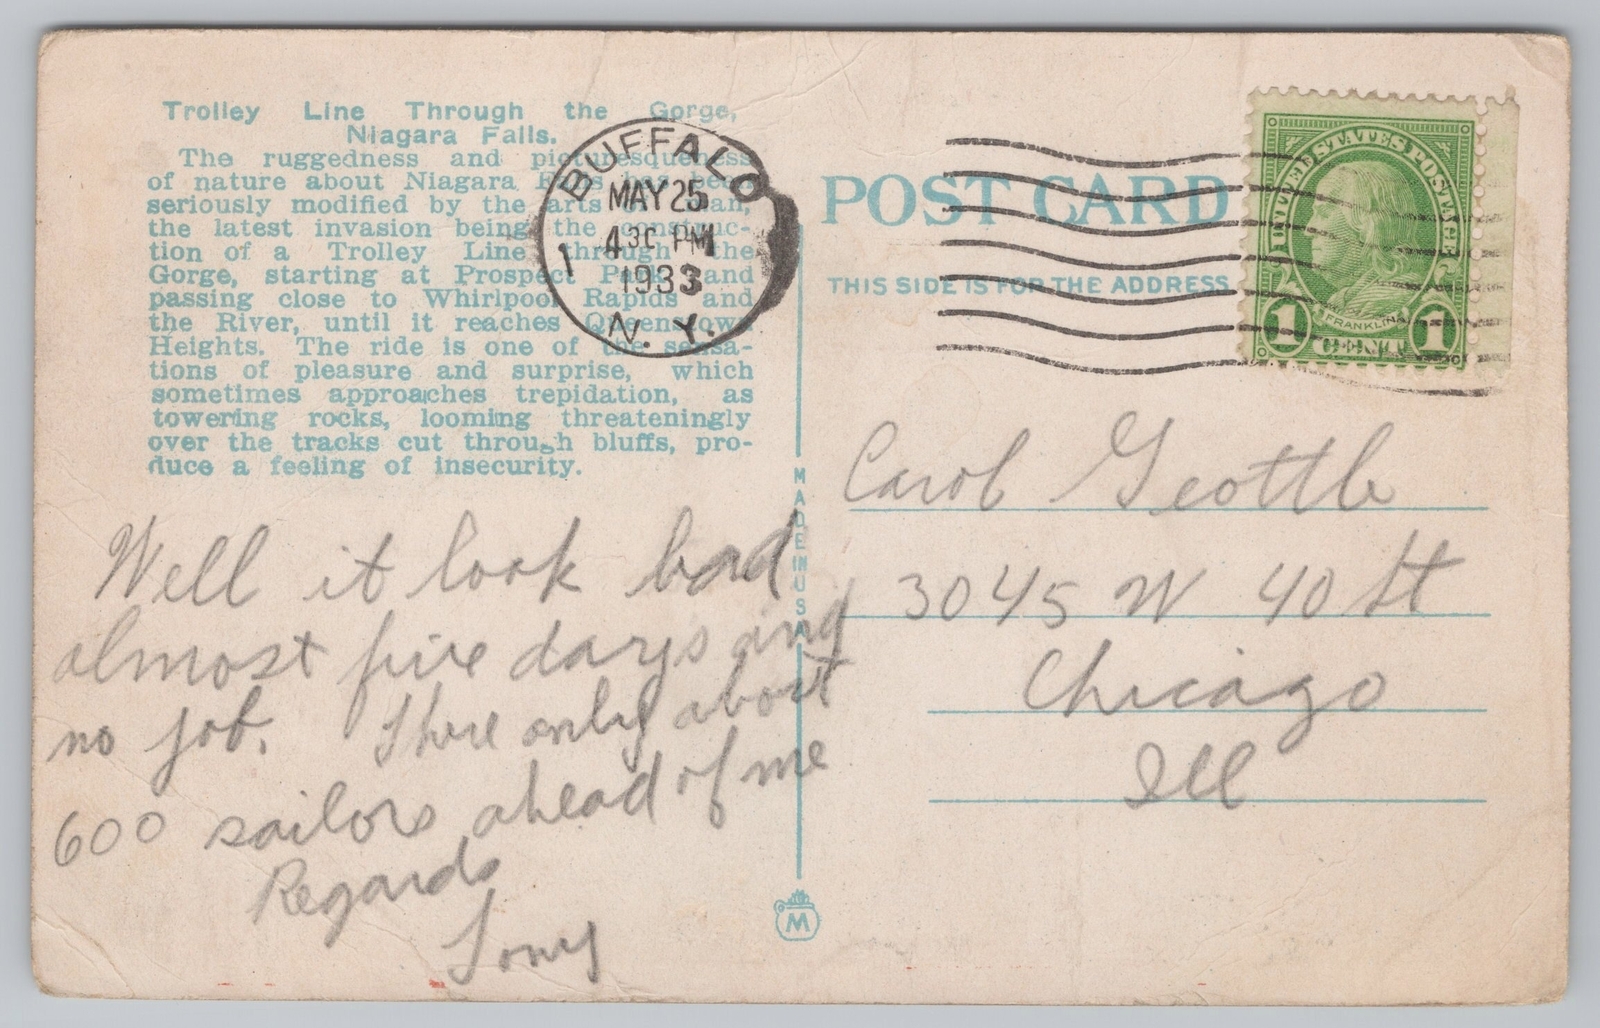 Trolley Line Through the Gorge,
Niagara Falls.
The ruggedness and picturesqueness
of nature about Niagara Falls has been
seriously modified by the arts of man,
the latest invasion being the construc-
tion of a Trolley Line through the
Gorge, starting at Prospect Park and
passing close to Whirlpool Rapids and
the River, until it reaches Queenstown
Heights. The ride is one of the sensa-
tions of pleasure and surprise, which
sometimes approaches trepidation, as
towering rocks, looming threateningly
over the tracks cut through bluffs, pro-
duce a feeling of insecurity.
BUFFALO
MAY 25
4 30 PM
1
1933
N. Y.
Well it look bad
almost five days and
no job. There only about
600 sailors ahead of me
Regards
Tony
MADE IN USA
M
POST CARD
THIS SIDE IS FOR THE ADDRESS
UNITED STATES POSTAGE
FRANKLIN
1 CENT 1
Carol
3045 W 40 St
Chicago
Ill